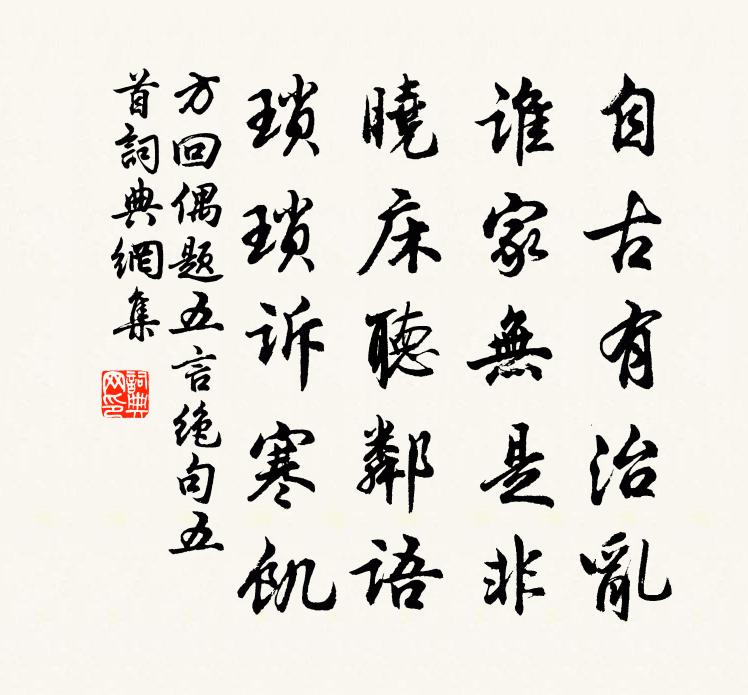 自古有治亂
誰家無是非
曉床聽鄰語
瑣瑣訴寒飢
方回偶题五言绝句五
首詞典網集
詞典网印